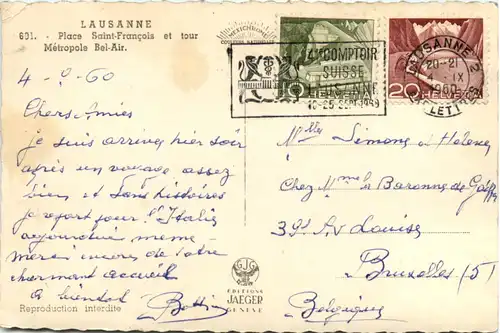 LAUSANNE
601. - Place Saint-François et tour
Métropole Bel-Air.
4-9-60
Chers Amies
je suis arrivé hier soir
après un voyage assez
bien et sans histoires
je repart pour l'Italie
aujourd'hui meme
merci encore de votre
charmant accueil
A bientot
Reproduction interdite
GJG
EDITIONS
JAEGER
GENÈVE
COMPTOIR
SUISSE
LAUSANNE
10-25 SEPT. 1960
10
20
LAUSANNE 2
20-21
IX
1960
LETTRES
Mlles Simone et Helene
Chez Mme la Baronne de
39 Av Louise
Bruxelles (5)
Belgique